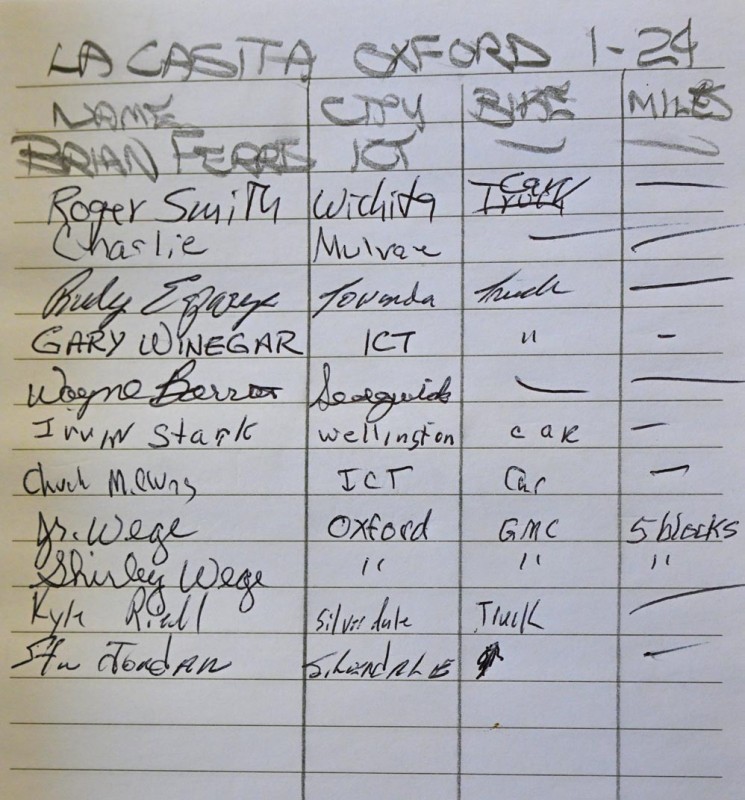 LA CASITA OXFORD 1-24
NAME CITY BIKE MILES
BRIAN FERRIS ICT — —
Roger Smith Wichita Car —
Charlie Mulvane — —
Rudy Towanda Truck —
GARY WINEGAR ICT " -
Wayne Sedgwick — —
Irvin Stark Wellington CAR —
Chuck ICT Car —
Jr. Wege Oxford GMC 5 blocks
Shirley Wege " " "
Kyle Silverdale Truck —
Stu Jordan SilverdALE —